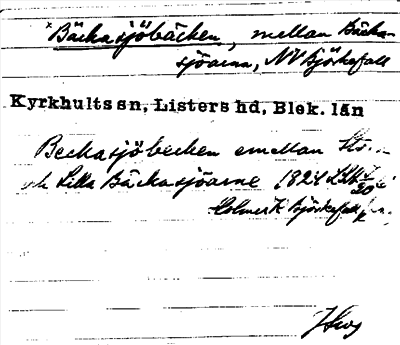 ×Bäckasjöbäcken, mellan Bäcka-
sjöarna, NV Björkefall
Kyrkhults sn, Listers hd, Blek. län
Beckasjöbecken emellan Sto
och Lilla Bäckasjöarne 1824 LSA
Holmen Björkefall